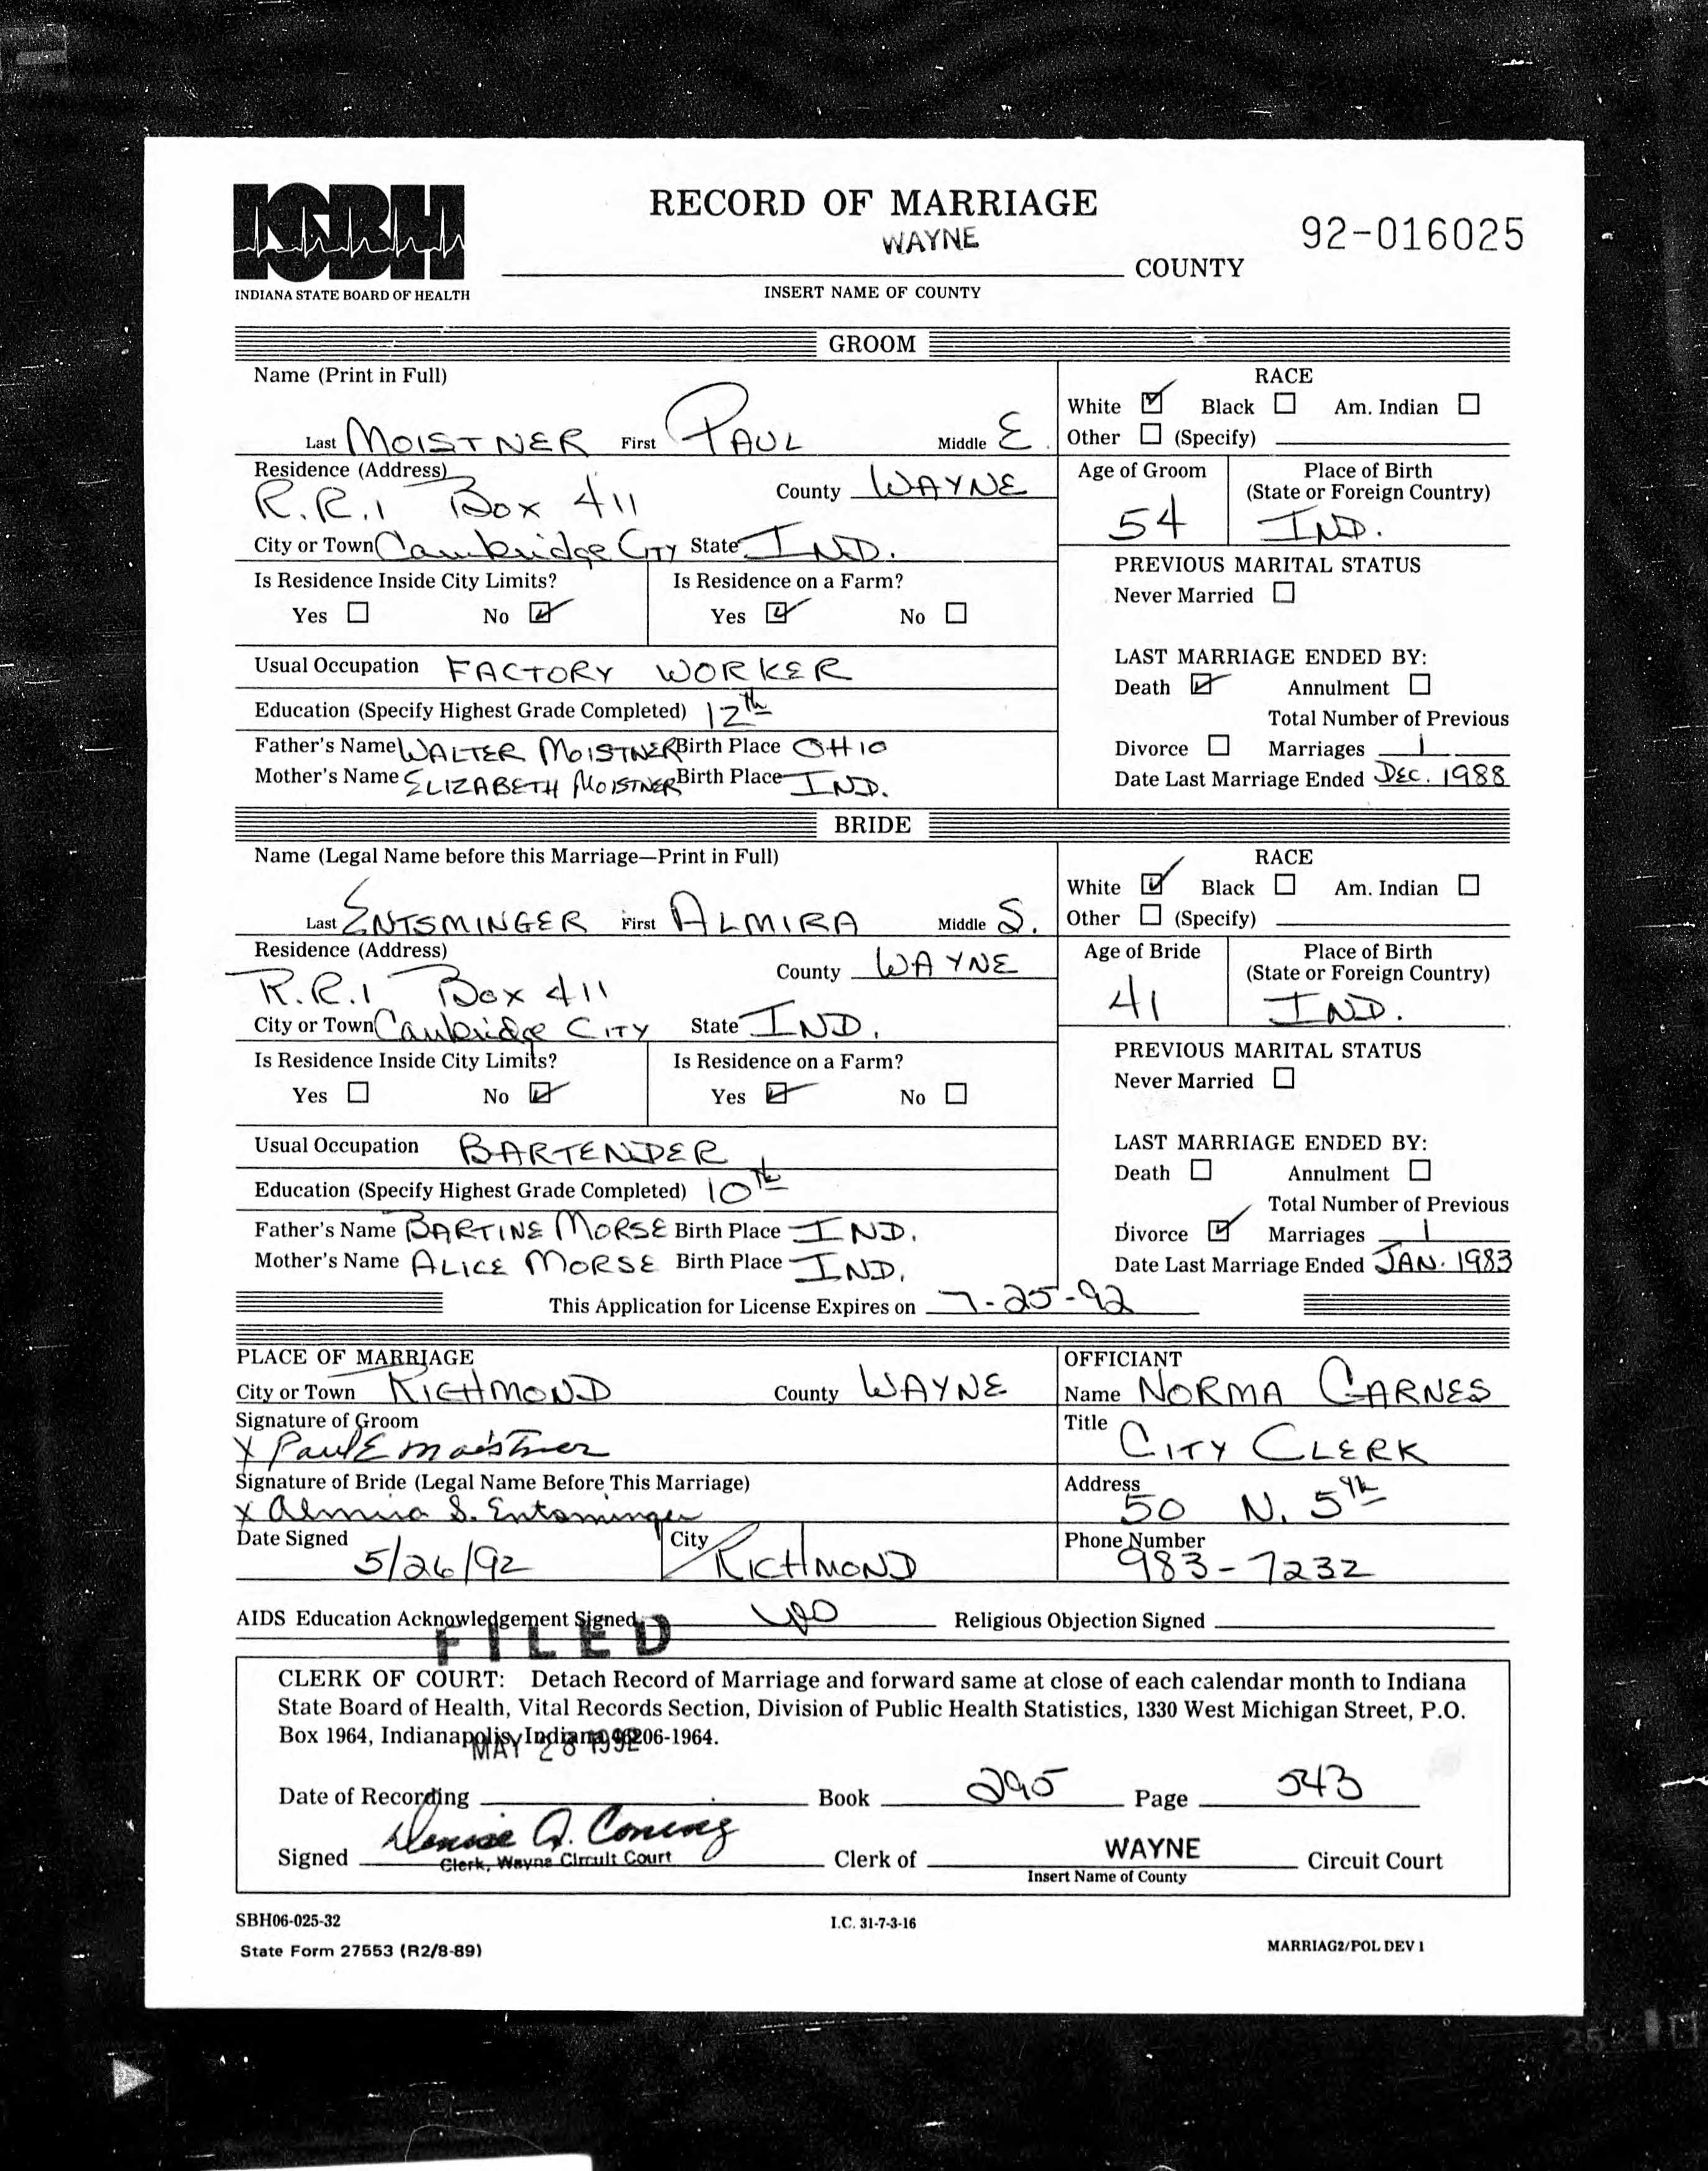 ISBH
INDIANA STATE BOARD OF HEALTH
RECORD OF MARRIAGE
92-016025
WAYNE COUNTY
INSERT NAME OF COUNTY
GROOM
Name (Print in Full)
Last MOISTNER First PAUL Middle E.
RACE
White ☑ Black ☐ Am. Indian ☐
Other ☐ (Specify)
Residence (Address)
R.R.1 Box 411 County WAYNE
City or Town Cambridge City State IND.
Age of Groom
54
Place of Birth
(State or Foreign Country)
IND.
Is Residence Inside City Limits?
Yes ☐ No ☑
Is Residence on a Farm?
Yes ☑ No ☐
PREVIOUS MARITAL STATUS
Never Married ☐
Usual Occupation FACTORY WORKER
Education (Specify Highest Grade Completed) 12th
Father's Name WALTER MOISTNER Birth Place OHIO
Mother's Name ELIZABETH MOISTNER Birth Place IND.
LAST MARRIAGE ENDED BY:
Death ☑ Annulment ☐
Total Number of Previous
Divorce ☐ Marriages 1
Date Last Marriage Ended DEC. 1988
BRIDE
Name (Legal Name before this Marriage—Print in Full)
Last ENTSMINGER First ALMIRA Middle S.
RACE
White ☑ Black ☐ Am. Indian ☐
Other ☐ (Specify)
Residence (Address)
R.R.1 Box 411 County WAYNE
City or Town Cambridge CITY State IND.
Age of Bride
41
Place of Birth
(State or Foreign Country)
IND.
Is Residence Inside City Limits?
Yes ☐ No ☑
Is Residence on a Farm?
Yes ☑ No ☐
PREVIOUS MARITAL STATUS
Never Married ☐
Usual Occupation BARTENDER
Education (Specify Highest Grade Completed) 10th
Father's Name BARTINE MORSE Birth Place IND.
Mother's Name ALICE MORSE Birth Place IND.
LAST MARRIAGE ENDED BY:
Death ☐ Annulment ☐
Total Number of Previous
Divorce ☑ Marriages 1
Date Last Marriage Ended JAN. 1983
This Application for License Expires on 7-25-92
PLACE OF MARRIAGE
City or Town RICHMOND County WAYNE
OFFICIANT
Name NORMA CARNES
Signature of Groom
X Paul E Moistner
Title CITY CLERK
Signature of Bride (Legal Name Before This Marriage)
X Almira S. Entsminger
Address
50 N. 5th
Date Signed
5/26/92
City RICHMOND
Phone Number
983-7232
AIDS Education Acknowledgement Signed yes Religious Objection Signed
FILED
CLERK OF COURT: Detach Record of Marriage and forward same at close of each calendar month to Indiana
State Board of Health, Vital Records Section, Division of Public Health Statistics, 1330 West Michigan Street, P.O.
Box 1964, Indianapolis, Indiana 46206-1964.
MAY 28 1992
Date of Recording Book 295 Page 543
Signed Denise Q. Coning Clerk of WAYNE Circuit Court
Clerk, Wayne Circuit Court
Insert Name of County
SBH06-025-32
I.C. 31-7-3-16
State Form 27553 (R2/8-89)
MARRIAG2/POL DEV 1